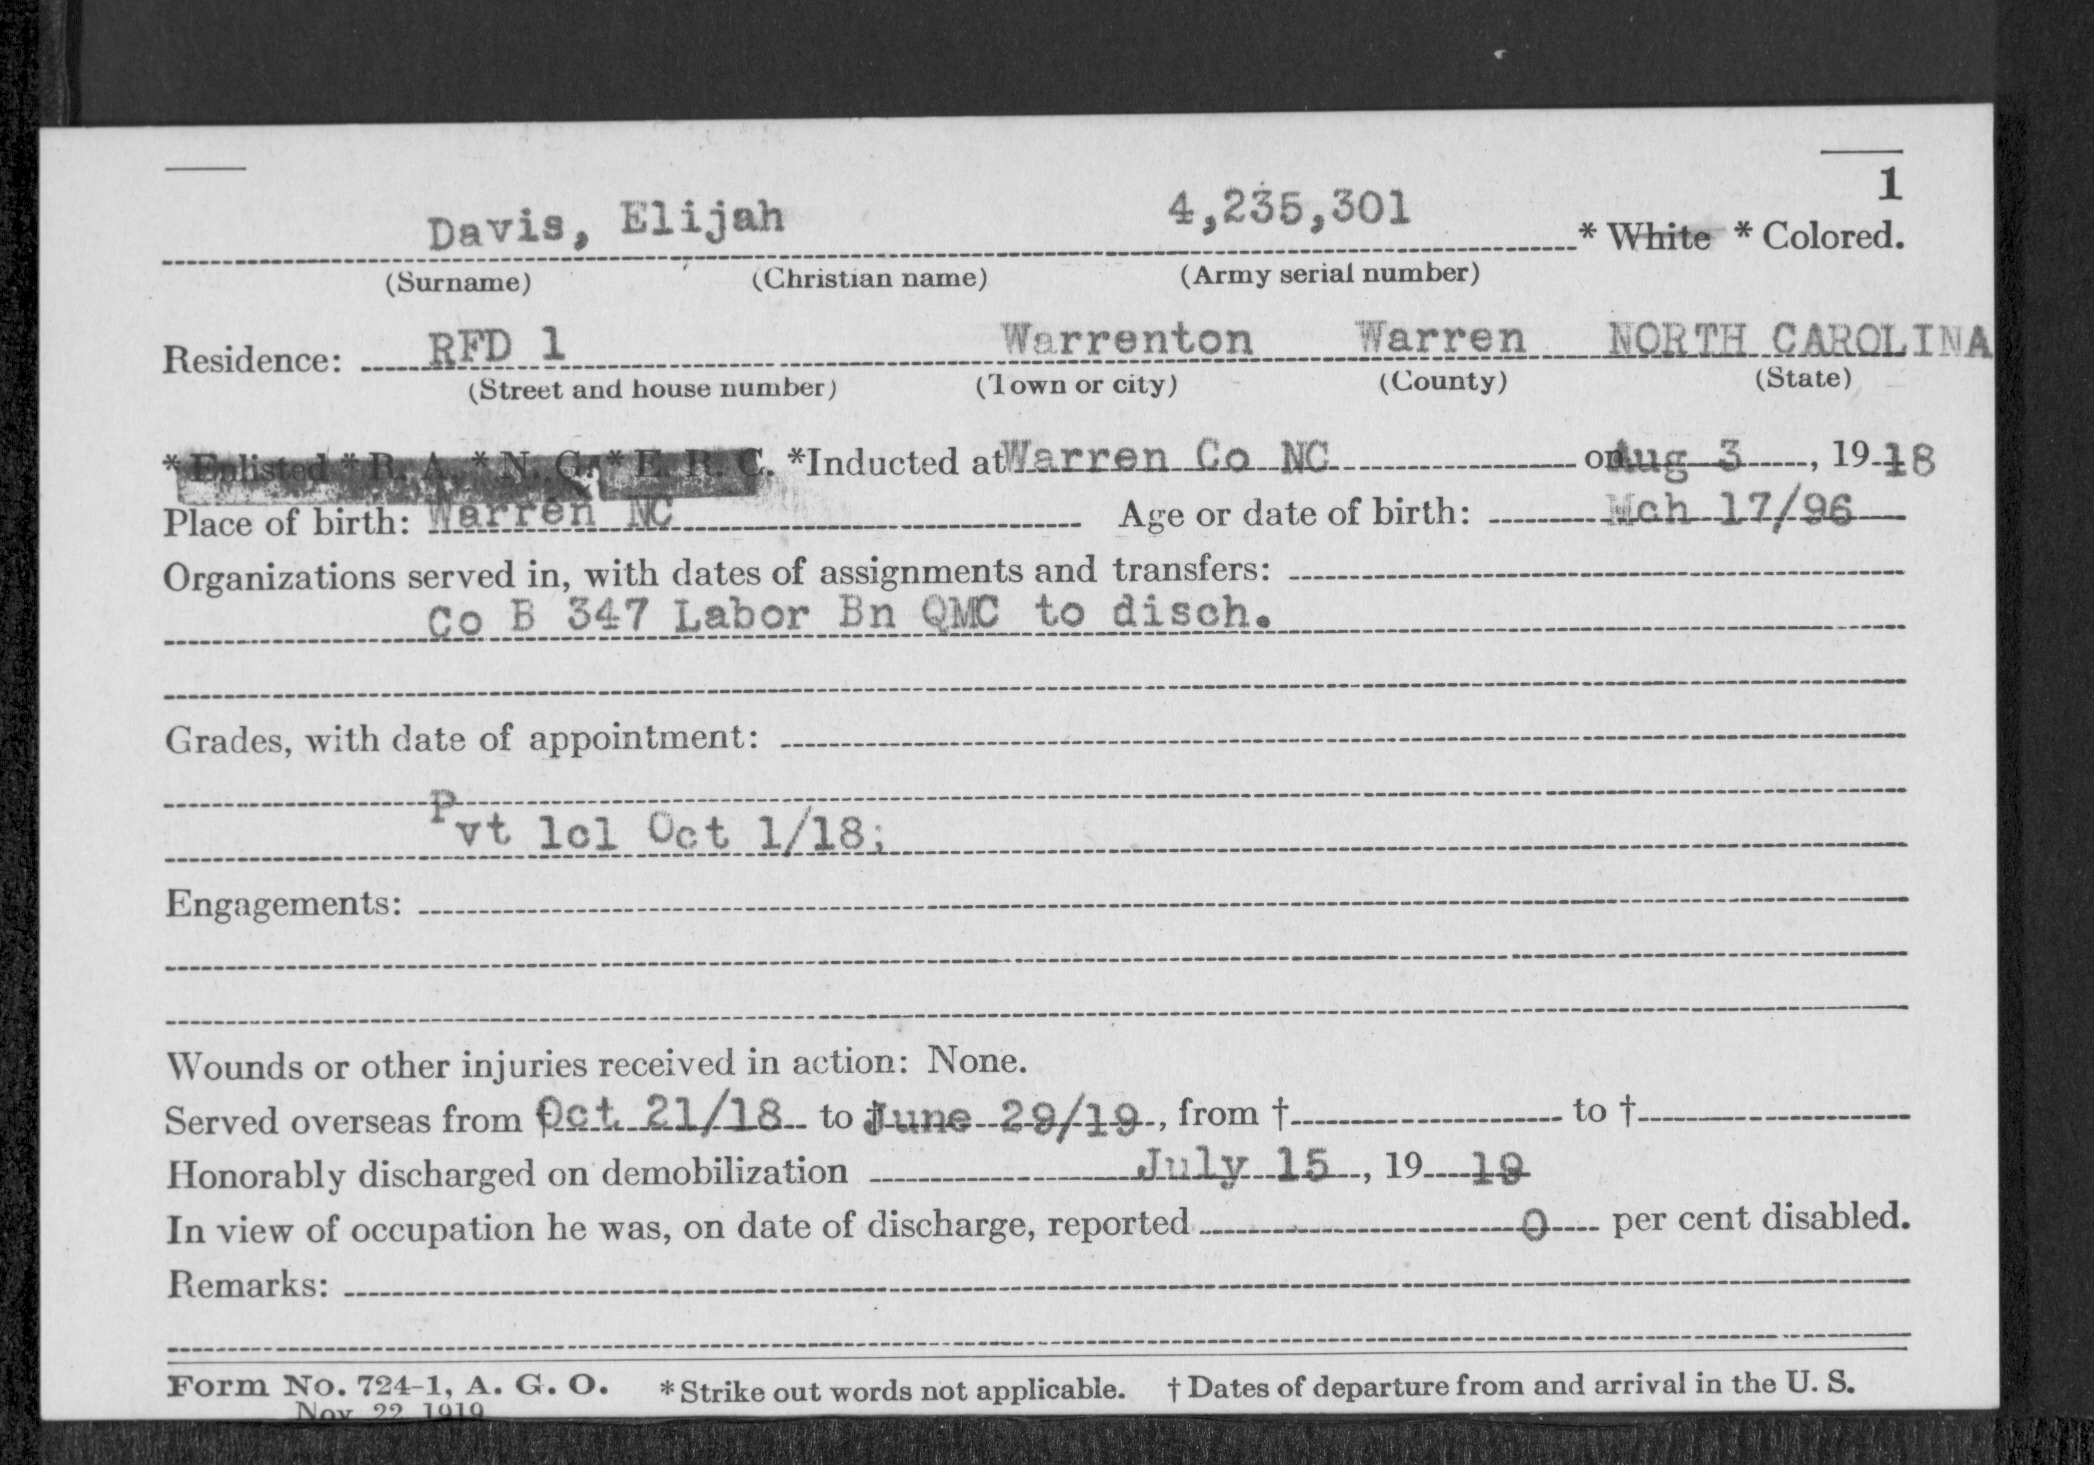 1
Davis, Elijah 4,235,301 * White * Colored.
(Surname) (Christian name) (Army serial number)
Residence: RFD 1 Warrenton Warren NORTH CAROLINA
(Street and house number) (Town or city) (County) (State)
* Enlisted * R. A. * N. G. * E. R. C. *Inducted at Warren Co NC on Aug 3, 19 18
Place of birth: Warren NC Age or date of birth: Mch 17/96
Organizations served in, with dates of assignments and transfers:
Co B 347 Labor Bn QMC to disch.
Grades, with date of appointment:
Pvt 1cl Oct 1/18;
Engagements:
Wounds or other injuries received in action: None.
Served overseas from † Oct 21/18 to † June 29/19, from † to †
Honorably discharged on demobilization July 15, 19 19
In view of occupation he was, on date of discharge, reported 0 per cent disabled.
Remarks:
Form No. 724-1, A. G. O. * Strike out words not applicable. † Dates of departure from and arrival in the U. S.
Nov. 22, 1919